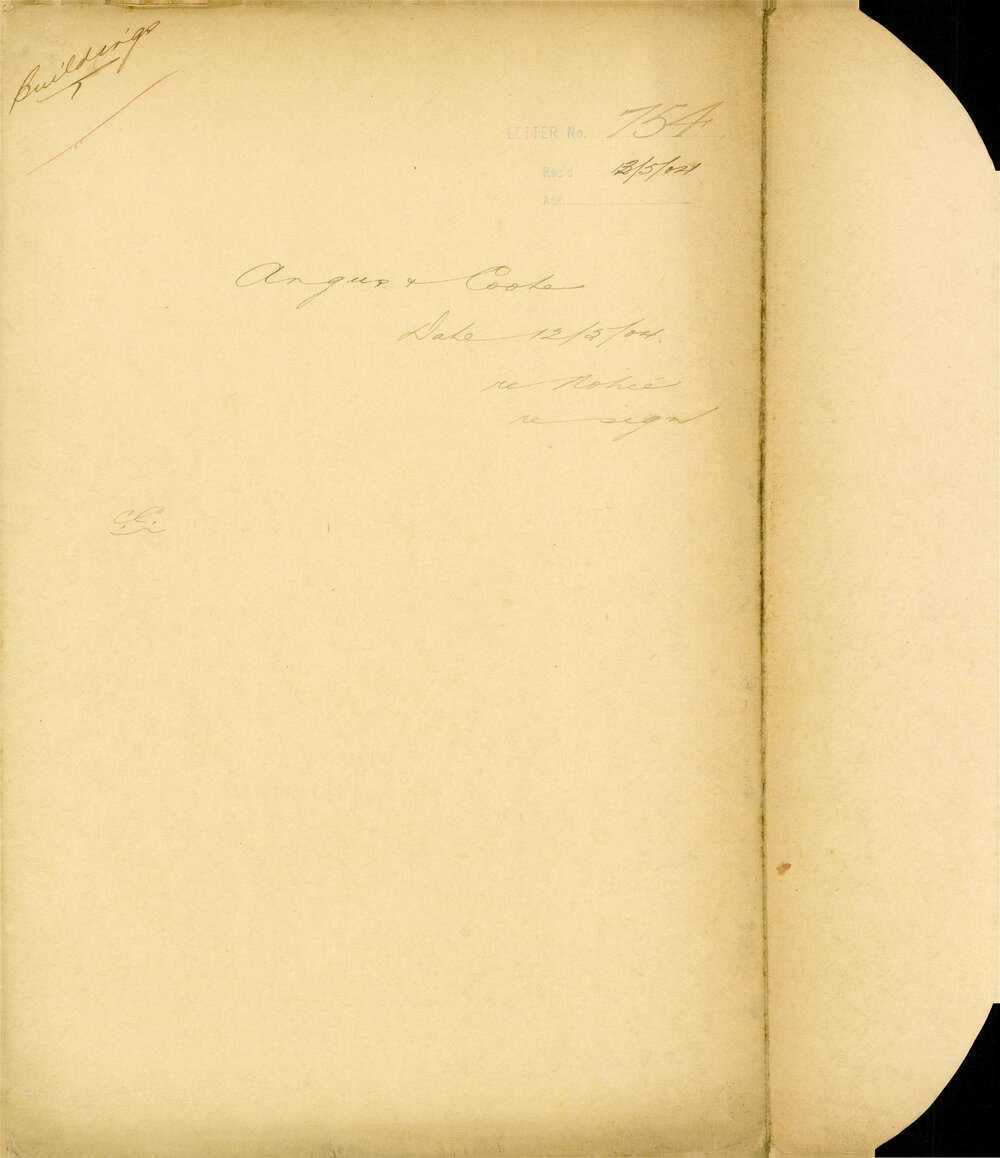 Buildings
LETTER No. 754
Rec'd 13/5/04
Ack
Angus & Coote
Date 12/5/04.
re Notice
re sign
C.C.